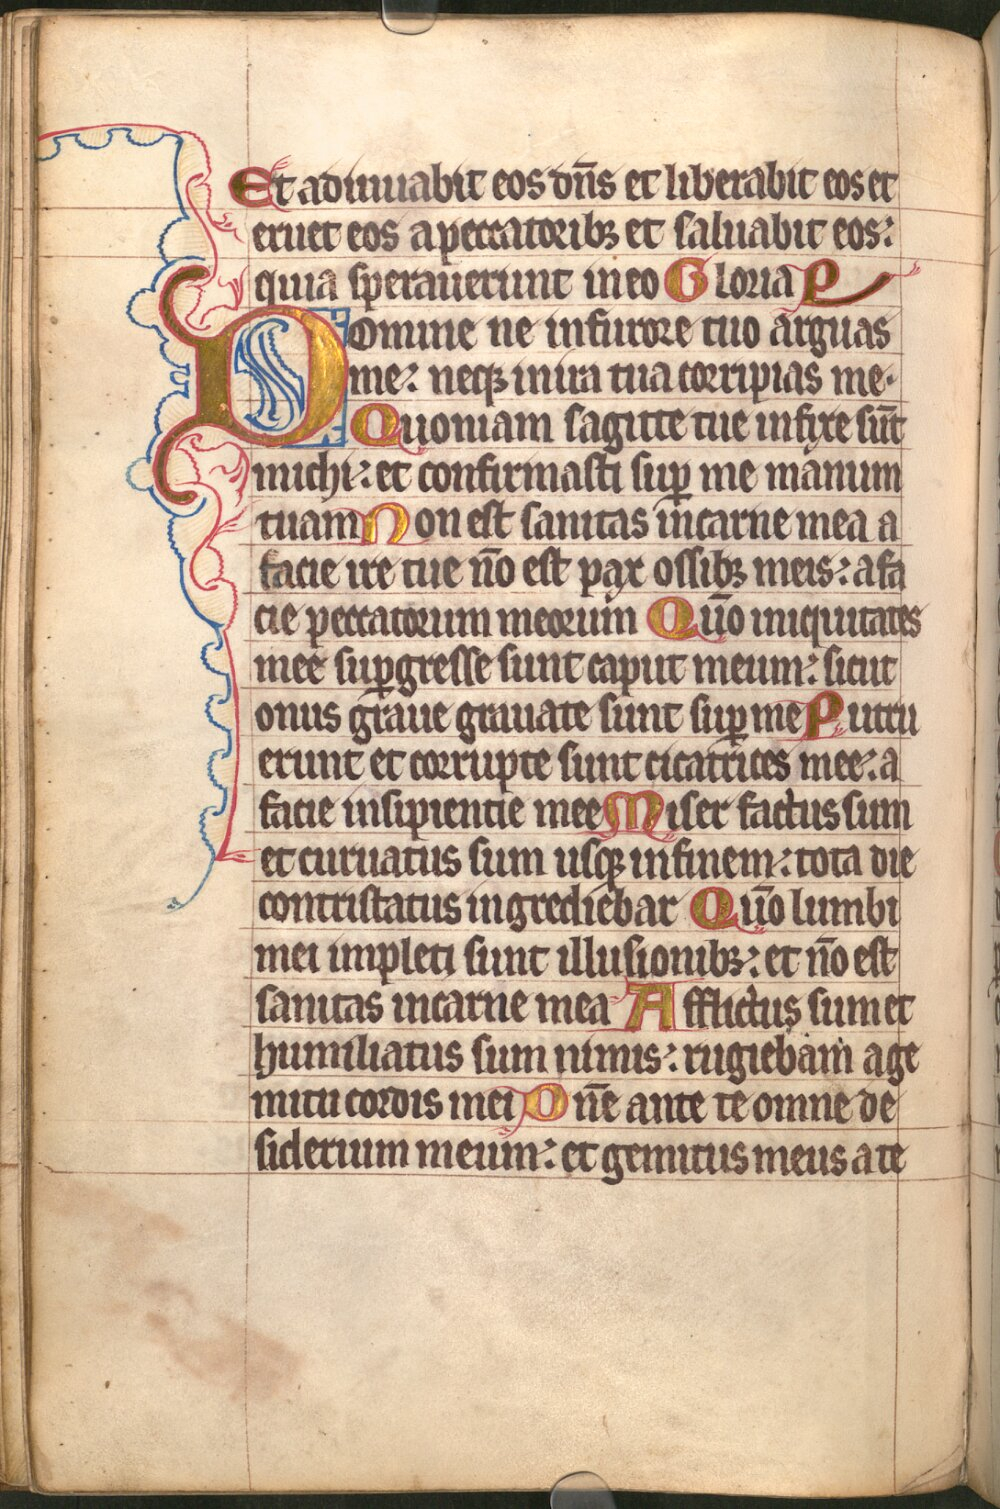 Et adiuuabit eos dn̄s et liberabit eos et
eruet eos a peccatoribꝫ et saluabit eos:
quia sperauerunt in eo Gloria P
Domine ne in furore tuo arguas
me: neqꝫ in ira tua corripias me.
Quoniam sagitte tue infixe sūt
michi: et confirmasti sup̄ me manum
tuam Non est sanitas in carne mea a
facie ire tue nō est pax ossibꝫ meis: a fa
cie peccatorum meorum Qūo iniquitates
mee sup̄gresse sunt caput meum: sicut
onus graue grauate sunt sup̄ me Putru
erunt et corrupte sunt cicatrices mee: a
facie insipientie mee Miser factus sum
et curuatus sum usqꝫ in finem: tota die
contristatus ingrediebar Qūo lumbi
mei impleti sunt illusionibꝫ: et nō est
sanitas in carne mea Afflictus sum et
humiliatus sum nimis: rugiebam a ge
mitu cordis mei Dn̄e ante te omne de
siderium meum: et gemitus meus a te